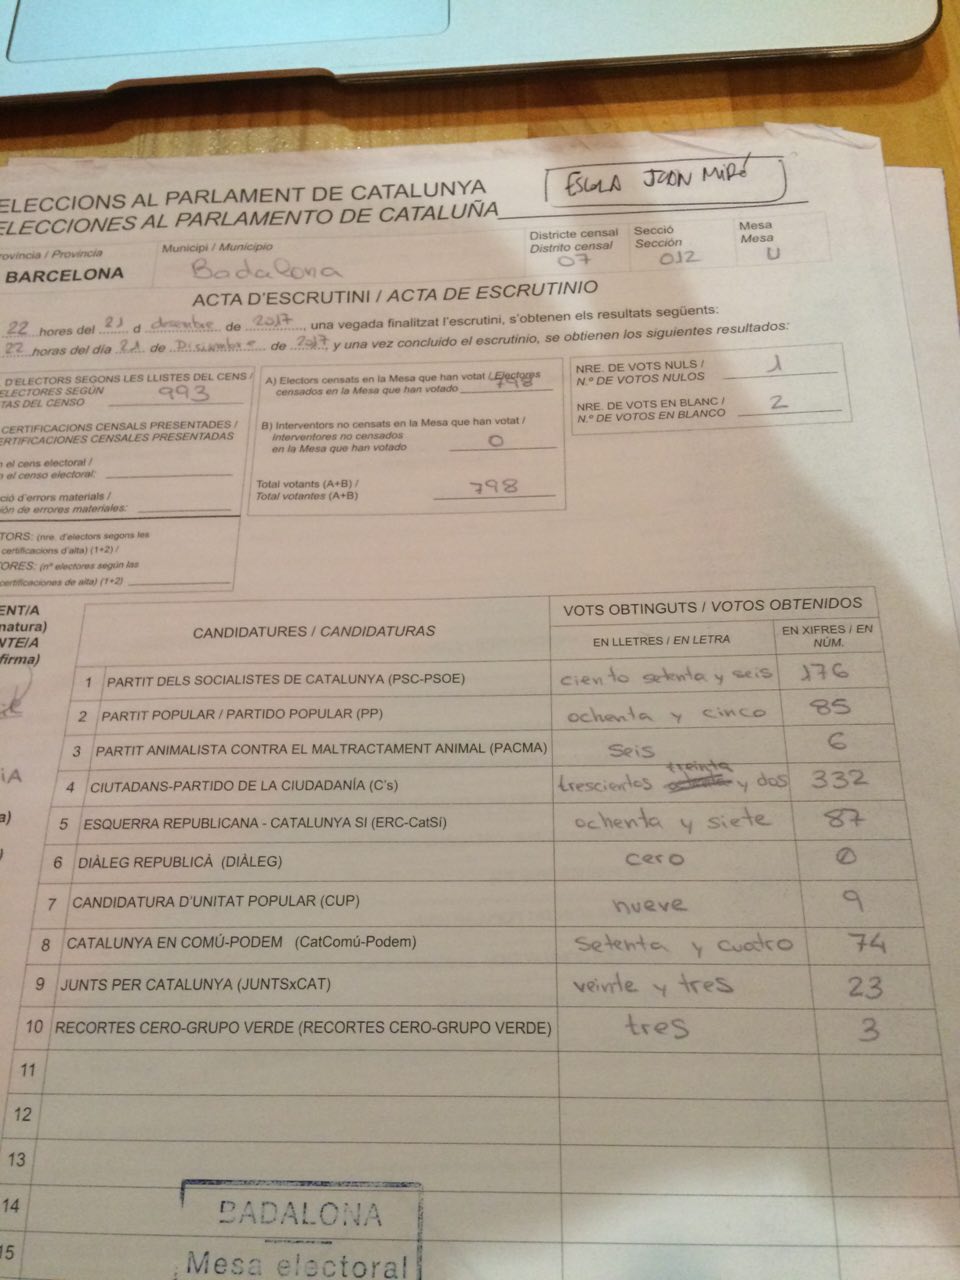 ELECCIONS AL PARLAMENT DE CATALUNYA
ELECCIONES AL PARLAMENTO DE CATALUÑA
ESCOLA JOAN MIRÓ
Provincia / Provincia
BARCELONA
Municipi / Municipio
Badalona
Districte censal
Distrito censal
07
Secció
Sección
012
Mesa
Mesa
U
ACTA D'ESCRUTINI / ACTA DE ESCRUTINIO
22 hores del 21 d desembre de 2017, una vegada finalitzat l'escrutini, s'obtenen els resultats següents:
22 horas del día 21 de Diciembre de 2017 y una vez concluido el escrutinio, se obtienen los siguientes resultados:
D'ELECTORS SEGONS LES LLISTES DEL CENS /
ELECTORES SEGÚN
TAS DEL CENSO 993
CERTIFICACIONS CENSALS PRESENTADES /
CERTIFICACIONES CENSALES PRESENTADAS
n el cens electoral /
n el censo electoral:
ció d'errors materials /
ión de errores materiales:
TORS: (nre. d'electors segons les
certificacions d'alta) (1+2) /
ORES: (nº electores según las
certificaciones de alta) (1+2)
A) Electors censats en la Mesa que han votat / Electores
censados en la Mesa que han votado 798
B) Interventors no censats en la Mesa que han votat /
Interventores no censados
en la Mesa que han votado 0
Total votants (A+B) /
Total votantes (A+B) 798
NRE. DE VOTS NULS /
N.º DE VOTOS NULOS 1
NRE. DE VOTS EN BLANC /
N.º DE VOTOS EN BLANCO 2
ENT/A
natura)
NTE/A
firma)
CANDIDATURES / CANDIDATURAS
VOTS OBTINGUTS / VOTOS OBTENIDOS
EN LLETRES / EN LETRA
EN XIFRES / EN
NÚM.
1 PARTIT DELS SOCIALISTES DE CATALUNYA (PSC-PSOE) ciento setenta y seis 176
2 PARTIT POPULAR / PARTIDO POPULAR (PP) ochenta y cinco 85
3 PARTIT ANIMALISTA CONTRA EL MALTRACTAMENT ANIMAL (PACMA) seis 6
4 CIUTADANS-PARTIDO DE LA CIUDADANÍA (C's) trescientos treinta y dos 332
5 ESQUERRA REPUBLICANA - CATALUNYA SI (ERC-CatSí) ochenta y siete 87
6 DIÀLEG REPUBLICÀ (DIÀLEG) cero 0
7 CANDIDATURA D'UNITAT POPULAR (CUP) nueve 9
8 CATALUNYA EN COMÚ-PODEM (CatComú-Podem) setenta y cuatro 74
9 JUNTS PER CATALUNYA (JUNTSxCAT) veinte y tres 23
10 RECORTES CERO-GRUPO VERDE (RECORTES CERO-GRUPO VERDE) tres 3
11
12
13
14
15
BADALONA
Mesa electoral